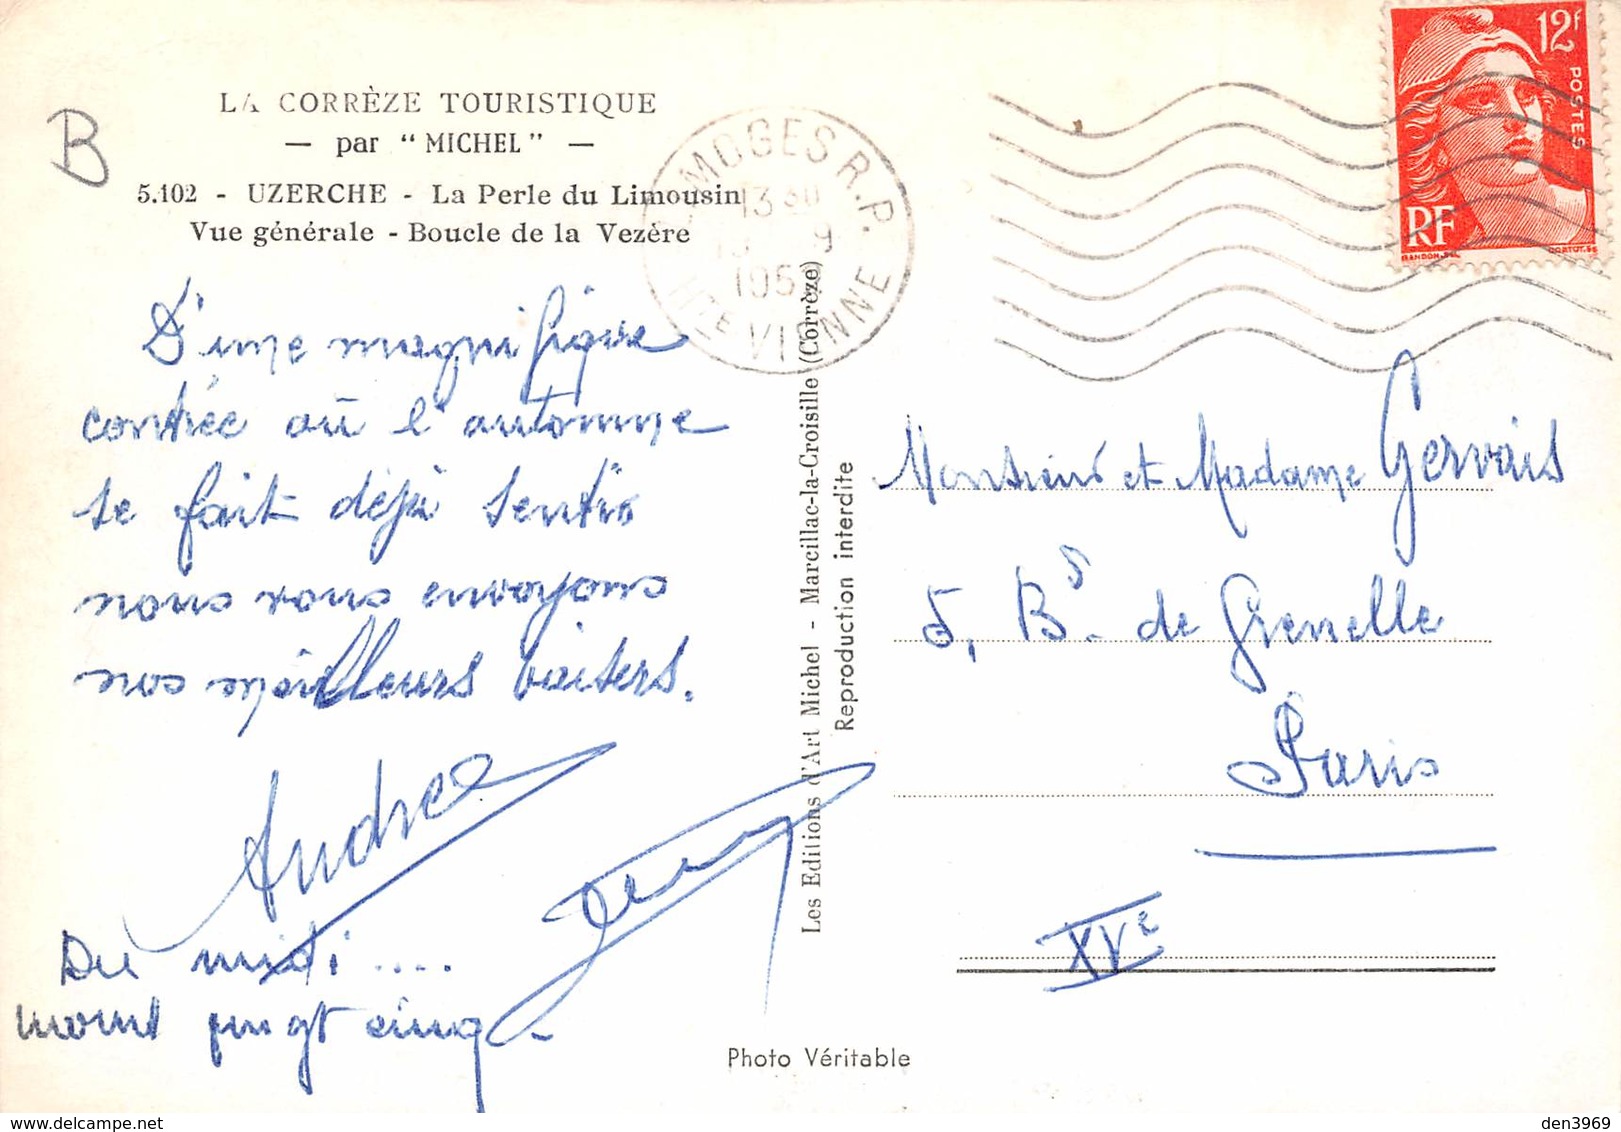 LA CORRÈZE TOURISTIQUE
— par “MICHEL” —
5.102 - UZERCHE - La Perle du Limousin
Vue générale - Boucle de la Vezére
B
D'une magnifique
contrée où l'automne
se fait déjà sentir
nous vous envoyons
nos meilleurs baisers.
Andrée
Du midi ....
moins vingt cinq.
LIMOGES R.P.
13 30
9
Hte VIENNE
12f
POSTES
RF
Les Editions d'Art Michel - Marcillac-la-Croisille (Corrèze)
Reproduction interdite
Monsieur et Madame Gervais
5, Bd. de Grenelle
Paris
XVe
Photo Véritable
den3969